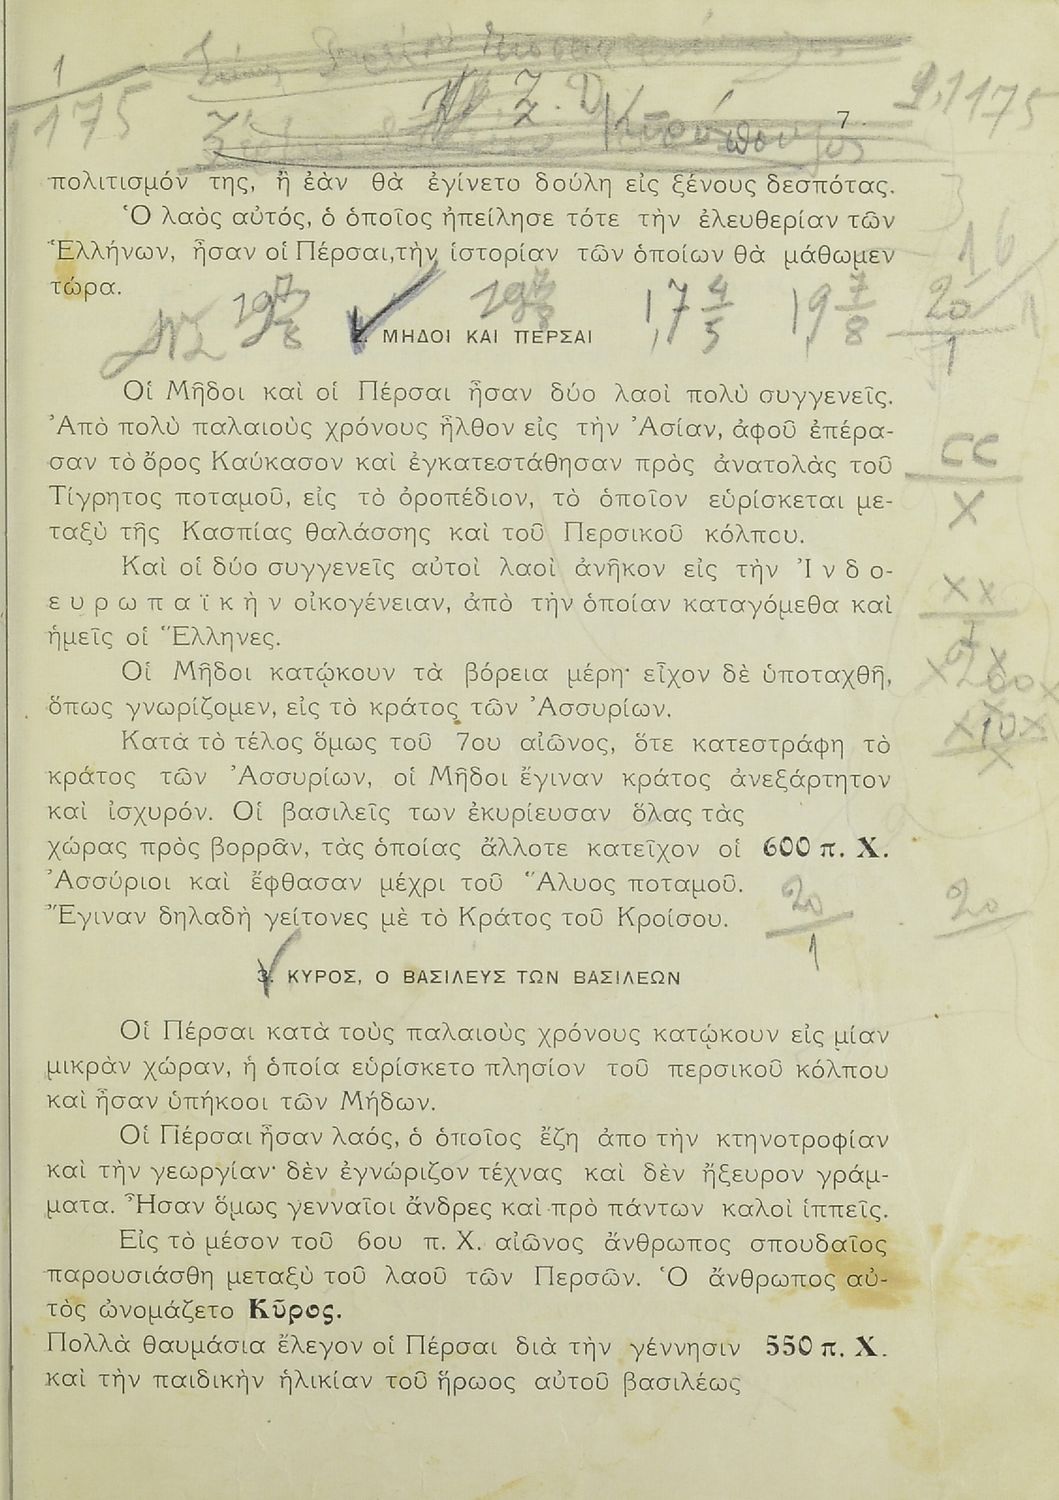 7
πολιτισμόν της, ἢ ἐὰν θὰ ἐγίνετο δούλη εἰς ξένους δεσπότας.
Ὁ λαὸς αὐτός, ὁ ὁποῖος ἠπείλησε τότε τὴν ἐλευθερίαν τῶν
Ἑλλήνων, ἦσαν οἱ Πέρσαι, τὴν ἱστορίαν τῶν ὁποίων θὰ μάθωμεν
τώρα.
2. ΜΗΔΟΙ ΚΑΙ ΠΕΡΣΑΙ
Οἱ Μῆδοι καὶ οἱ Πέρσαι ἦσαν δύο λαοὶ πολὺ συγγενεῖς.
Ἀπὸ πολὺ παλαιοὺς χρόνους ἦλθον εἰς τὴν Ἀσίαν, ἀφοῦ ἐπέρα-
σαν τὸ ὄρος Καύκασον καὶ ἐγκατεστάθησαν πρὸς ἀνατολὰς τοῦ
Τίγρητος ποταμοῦ, εἰς τὸ ὀροπέδιον, τὸ ὁποῖον εὑρίσκεται με-
ταξὺ τῆς Κασπίας θαλάσσης καὶ τοῦ Περσικοῦ κόλπου.
Καὶ οἱ δύο συγγενεῖς αὐτοὶ λαοὶ ἀνῆκον εἰς τὴν Ἰνδο-
ευρωπαϊκὴν οἰκογένειαν, ἀπὸ τὴν ὁποίαν καταγόμεθα καὶ
ἡμεῖς οἱ Ἕλληνες.
Οἱ Μῆδοι κατῴκουν τὰ βόρεια μέρη· εἶχον δὲ ὑποταχθῆ,
ὅπως γνωρίζομεν, εἰς τὸ κράτος τῶν Ἀσσυρίων.
Κατὰ τὸ τέλος ὅμως τοῦ 7ου αἰῶνος, ὅτε κατεστράφη τὸ
κράτος τῶν Ἀσσυρίων, οἱ Μῆδοι ἔγιναν κράτος ἀνεξάρτητον
καὶ ἰσχυρόν. Οἱ βασιλεῖς των ἐκυρίευσαν ὅλας τὰς
χώρας πρὸς βορρᾶν, τὰς ὁποίας ἄλλοτε κατεῖχον οἱ 600 π. Χ.
Ἀσσύριοι καὶ ἔφθασαν μέχρι τοῦ Ἅλυος ποταμοῦ.
Ἔγιναν δηλαδὴ γείτονες μὲ τὸ Κράτος τοῦ Κροίσου.
3. ΚΥΡΟΣ, Ο ΒΑΣΙΛΕΥΣ ΤΩΝ ΒΑΣΙΛΕΩΝ
Οἱ Πέρσαι κατὰ τοὺς παλαιοὺς χρόνους κατῴκουν εἰς μίαν
μικρὰν χώραν, ἡ ὁποία εὑρίσκετο πλησίον τοῦ περσικοῦ κόλπου
καὶ ἦσαν ὑπήκοοι τῶν Μήδων.
Οἱ Πέρσαι ἦσαν λαός, ὁ ὁποῖος ἔζη ἀπο τὴν κτηνοτροφίαν
καὶ τὴν γεωργίαν· δὲν ἐγνώριζον τέχνας καὶ δὲν ἤξευρον γράμ-
ματα. Ἦσαν ὅμως γενναῖοι ἄνδρες καὶ πρὸ πάντων καλοὶ ἱππεῖς.
Εἰς τὸ μέσον τοῦ 6ου π. Χ. αἰῶνος ἄνθρωπος σπουδαῖος
παρουσιάσθη μεταξὺ τοῦ λαοῦ τῶν Περσῶν. Ὁ ἄνθρωπος αὐ-
τὸς ὠνομάζετο Κῦρος.
Πολλὰ θαυμάσια ἔλεγον οἱ Πέρσαι διὰ τὴν γέννησιν 550 π. Χ.
καὶ τὴν παιδικὴν ἡλικίαν τοῦ ἥρωος αὐτοῦ βασιλέως